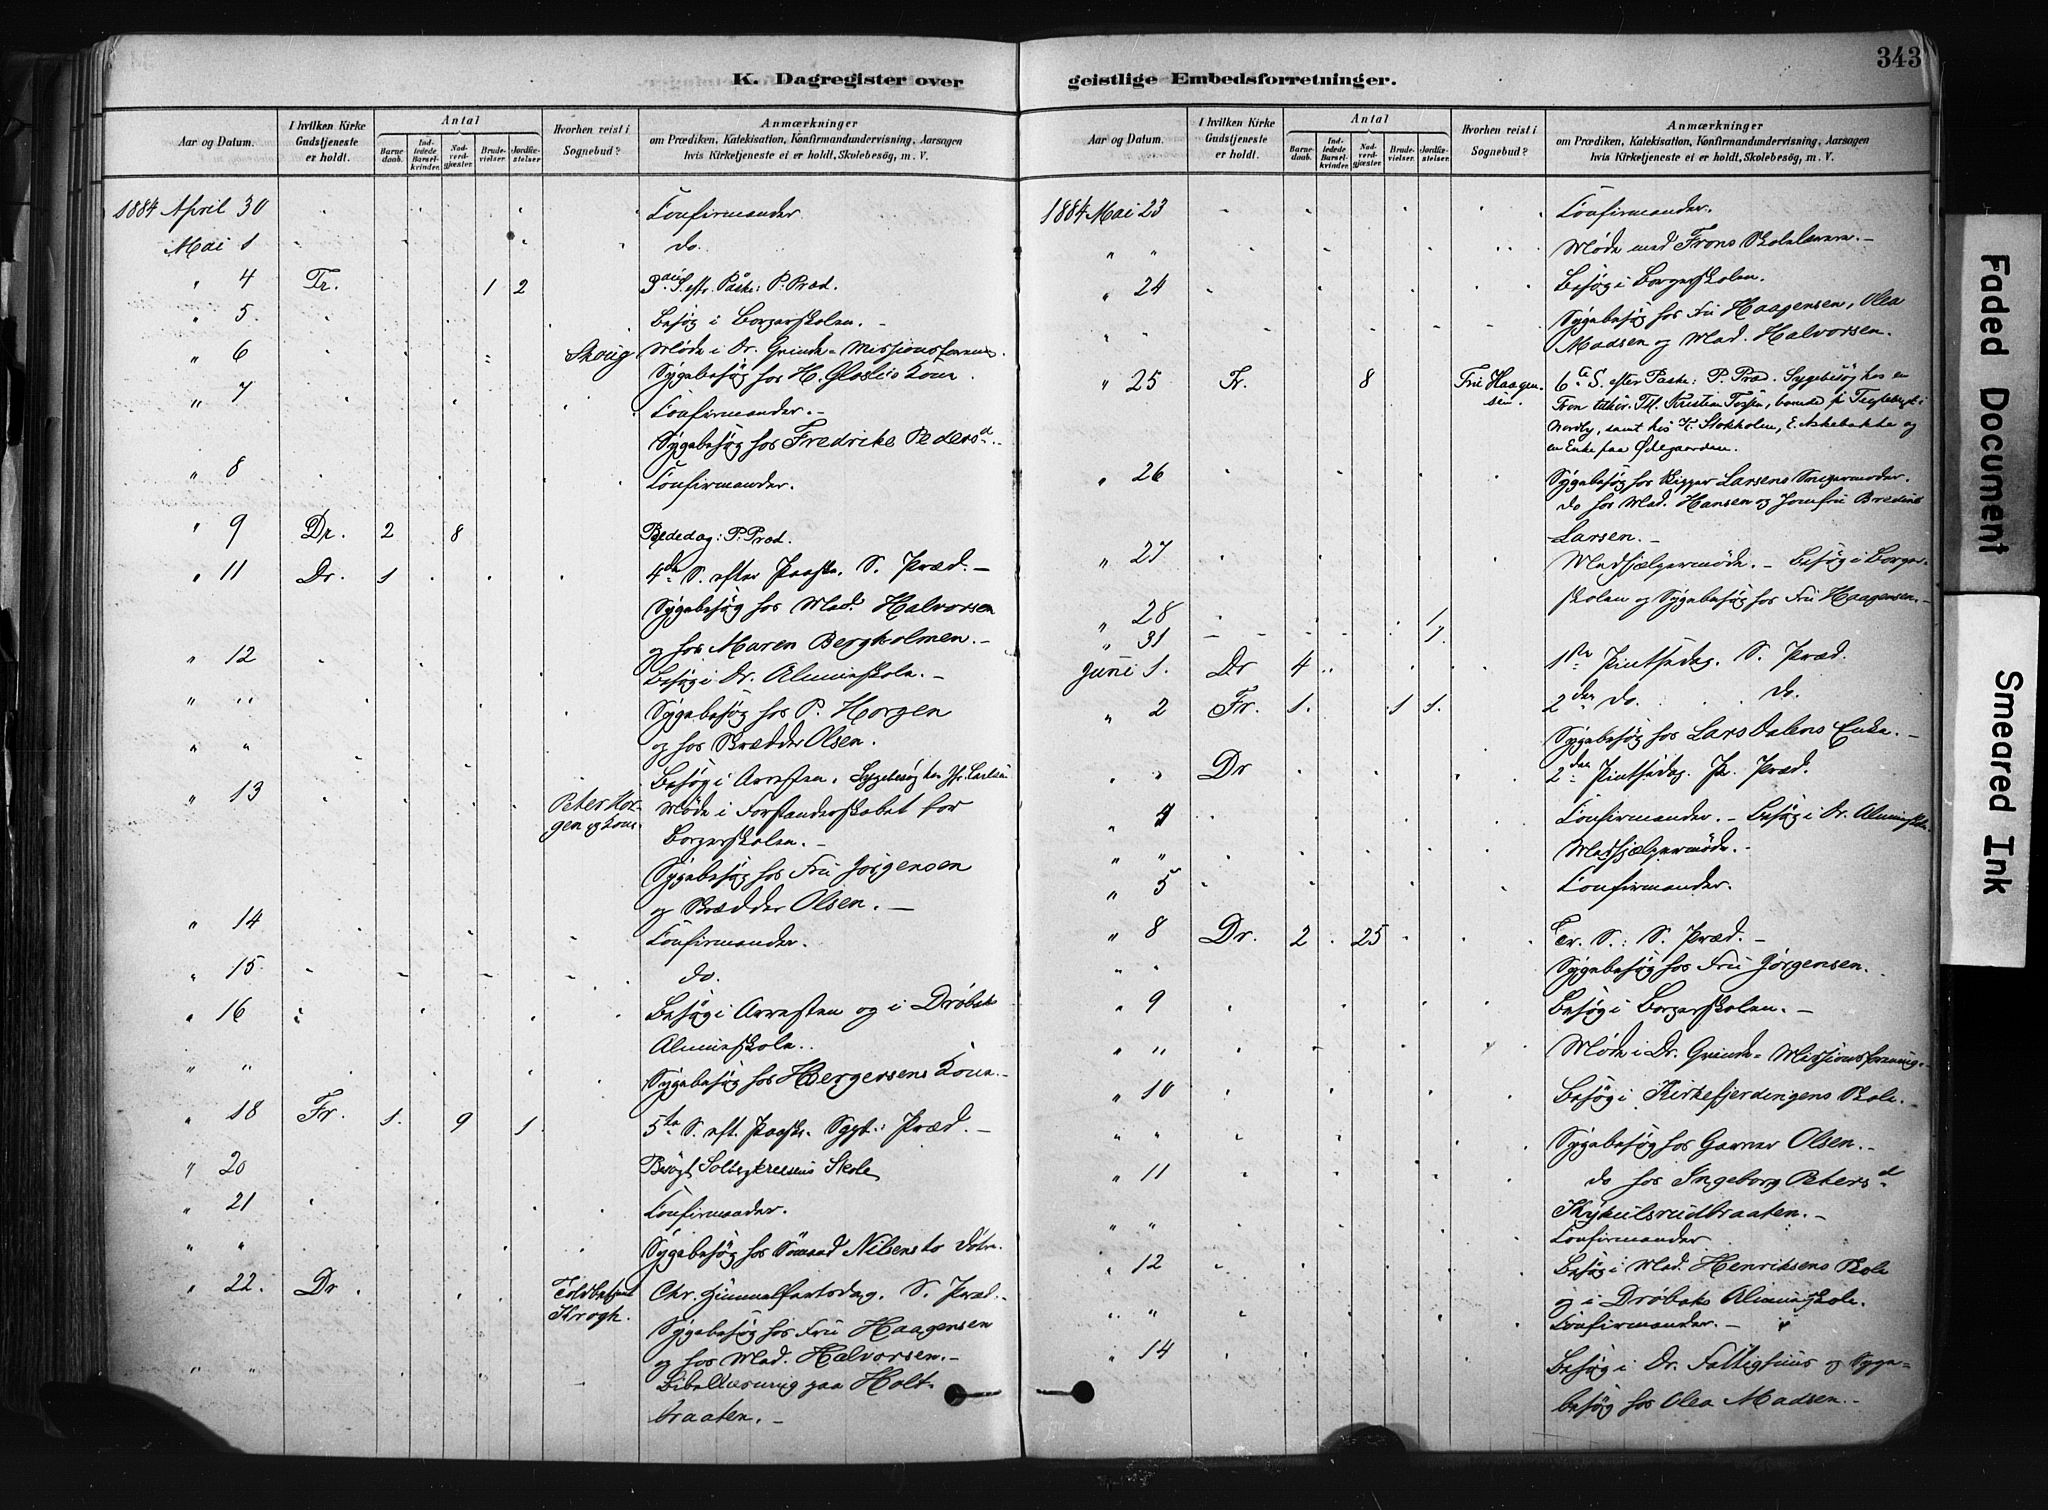 343
K. Dagregister over geistlige Embedsforretninger.
Aar og Datum.
I hvilken Kirke Gudstjeneste er holdt.
Antal
Barnedaab.
Indledede Barselkvinder.
Nadverdgjæster.
Brudevielser.
Jordfæstelser
Hvorhen reist i Sognebud?
Anmærkninger
om Prædiken, Katekisation, Konfirmandundervisning, Aarsagen
hvis Kirketjeneste ei er holdt, Skolebesög, m. V.
1884 April 30 Confirmander
Mai 1 do.
" 4 Fr. 1 2 3die S. eftr. Påske: P. Præd.
" 5. Besøg i Borgerskolen. -
" 6 Skoug Møde i Dr. Qvinde-Missionsforening
Sygebesøg hos H. Gloslis Kone.
" 7 Confirmander. -
Sygebesøg hos Fredrike Pedersd.
" 8 Confirmander.
" 9 Dr. 2 8 Bededag: P. Præd.
" 11 Dr. 1 4de S. efter Paaske. S. Præd. -
Sygebesøg hos Mad. Halvorsen
og hos Maren Bergholmen. -
" 12 Besøg i Dr. Almueskole. -
" " Sygebesøg hos P. Horgen
og hos Skrædder Olsen.
" " Besøg i Arresten. Sygebesøg hos
" 13 Peter Horgen og Kone. Møde i Forstanderskabet for
Borgerskolen. -
Sygebesøg hos Fru Jørgensen
og Skrædder Olsen. -
" 14 Confirmander.
" 15 do.
" 16 Besøg i Arresten og i Drøbaks
Almueskole.
" " Sygebesøg hos Hergersens Kone. -
" 18 Fr. 1. 9 1. 5te S. eft. Paaske. Præd. -
" 20 Besøgt Solbergkredsens Skole
" 21 Confirmander.
" " Sygebesøg hos Sømand Nilsens to Døtre.
" 22. Dr Toldbetjent Krogh. Chr. Himmelfartsdag. S. Præd. -
Sygebesøg hos Fru Haagensen
og hos Mad. Halvorsen. -
" " Bibellæsning paa Holtbraaten. -
Aar og Datum.
I hvilken Kirke Gudstjeneste er holdt.
Antal
Barnedaab.
Indledede Barselkvinder.
Nadverdgjæster.
Brudevielser.
Jordfæstelser.
Hvorhen reist i Sognebud?
Anmærkninger
om Prædiken, Katekisation, Konfirmandundervisning, Aarsagen
hvis Kirketjeneste ei er holdt, Skolebesög, m. V.
1884 Mai 23 Confirmander.
" " Møde med Frons Skolelærere. -
" 24 Besøg i Borgerskolen.
" Sygebesøg hos Fru Haagensen, Olea
Madsen og Mad. Halvorsen.
" 25 Fr. 8 Fru Haagensen. 6te S. efter Paske: P. Præd. Sygebesøg hos en
Kristian
Nordby, samt hos Stokholm, E. Askebakke og
en Enke paa Ødegaarden.
" 26 Sygebesøg hos Rigger Larsens Svigermoder.
do hos Mad. Hansen og Jomfru Bredine
Larsen. -
" 27 Medhjælpermøde. - Besøg i Borgerskolen
og Sygebesøg hos Fru Haagensen. -
" 28 1
" 31 1.
Juni 1. Dr 4 1ste Pintsedag. S. Præd.
" 2 Fr. 1. 1 1. 2den do. do.
Sygebesøg hos Lars Dalens Enke. -
" " Dr 2den Pintsedag. Præd.
" 4 Confirmander. - Besøg i Dr. Almueskole.
" " Medhjælpermøde. -
" 5 Confirmander.
" 8 Dr. 2 25 Tr. S.: S. Præd. -
" " Sygebesøg hos Fru Jørgensen.
" 9 Besøg i Borgerskolen. -
" " Møde i Dr. Qvinde-Missionsforening. -
" 10 Besøg i Kirkefjerdingens Skole.
" " Sygebesøg hos Garver Olsen. -
" 11 do hos Ingeborg Petersd
Kykulsrudbraaten. -
" " Confirmander
" 12 Besøg i Mad. Henriksens Skole
og i Drøbaks Almueskole.
" " Confirmander. -
" 14 Besøg i Dr. Fattighuus og Sygebesøg
hos Olea Madsen. -
Faded Document
Smeared Ink